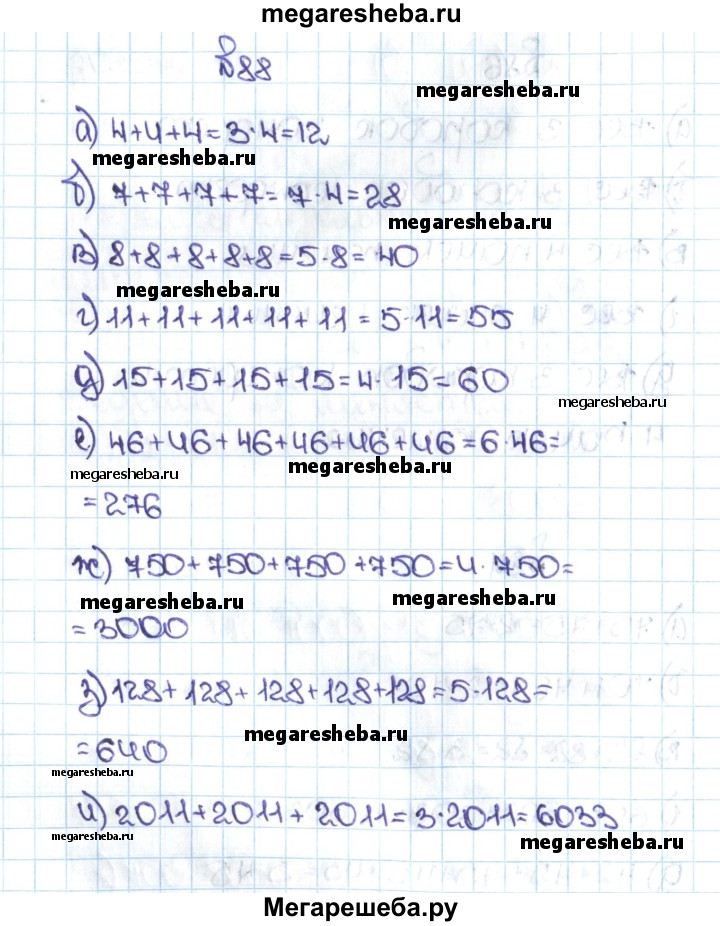 megaresheba.ru
№88
megaresheba.ru
а) 4+4+4=3·4=12
megaresheba.ru
б) 7+7+7+7=7·4=28
megaresheba.ru
в) 8+8+8+8+8=5·8=40
megaresheba.ru
г) 11+11+11+11+11=5·11=55
д) 15+15+15+15=4·15=60
megaresheba.ru
е) 46+46+46+46+46+46=6·46=
megaresheba.ru
megaresheba.ru
=276
ж) 750+750+750+750=4·750=
megaresheba.ru
megaresheba.ru
=3000
з) 128+128+128+128+128=5·128=
megaresheba.ru
=640
megaresheba.ru
и) 2011+2011+2011=3·2011=6033
megaresheba.ru
megaresheba.ru
Мегарешеба.ру